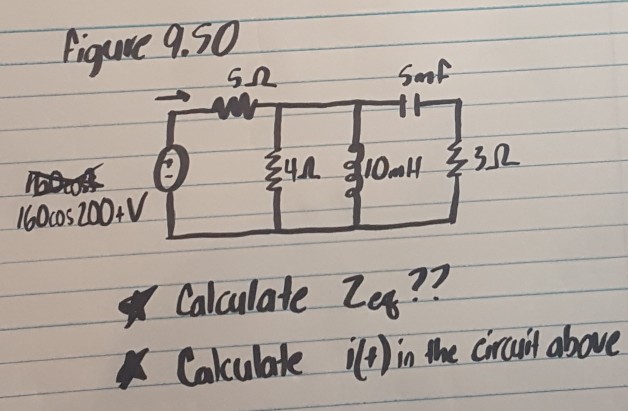 Figure 9.50
5Ω
5mF
4Ω
10mH
3Ω
160cos200tV
★ Calculate Zeq??
★ Calculate i(t) in the circuit above